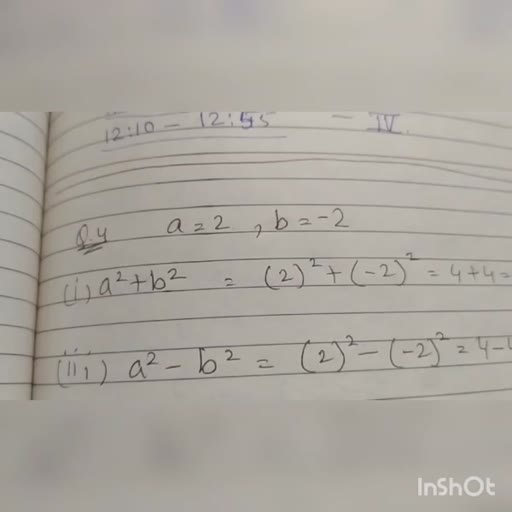 12:10 – 12:55 – IV.
Q.4 a = 2 , b = -2
(i) a² + b² = (2)² + (-2)² = 4 + 4 =
(iii) a² - b² = (2)² - (-2)² = 4 - 4
InShOt